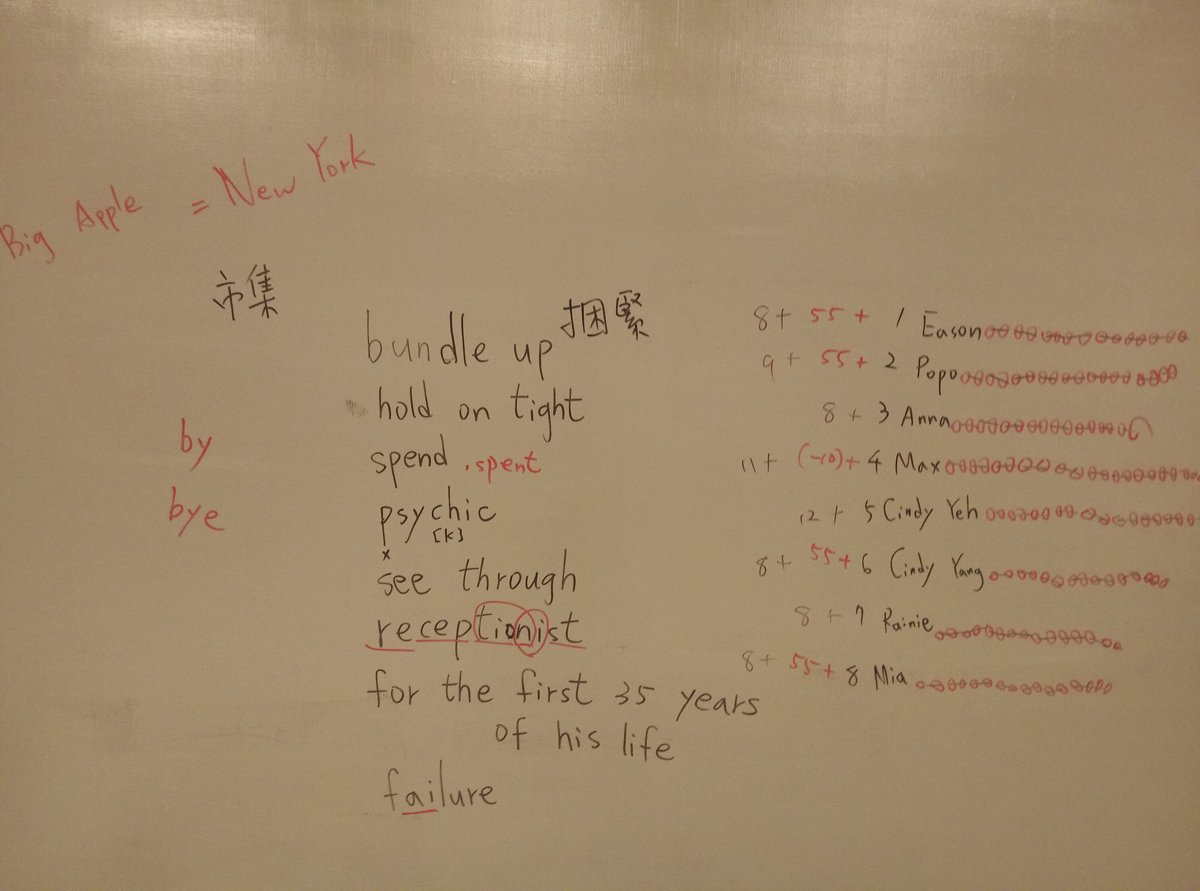 Big Apple = New York
市集
bundle up 捆緊
hold on tight
by
spend . spent
bye
psychic
x [k]
see through
receptionist
for the first 35 years
of his life
failure
8 + 55 + 1 Eason
9 + 55 + 2 Popo
8 + 3 Anna
11 + (-10) + 4 Max
12 + 5 Cindy Yeh
8 + 55 + 6 Cindy Yang
8 + 7 Rainie
8 + 55 + 8 Mia